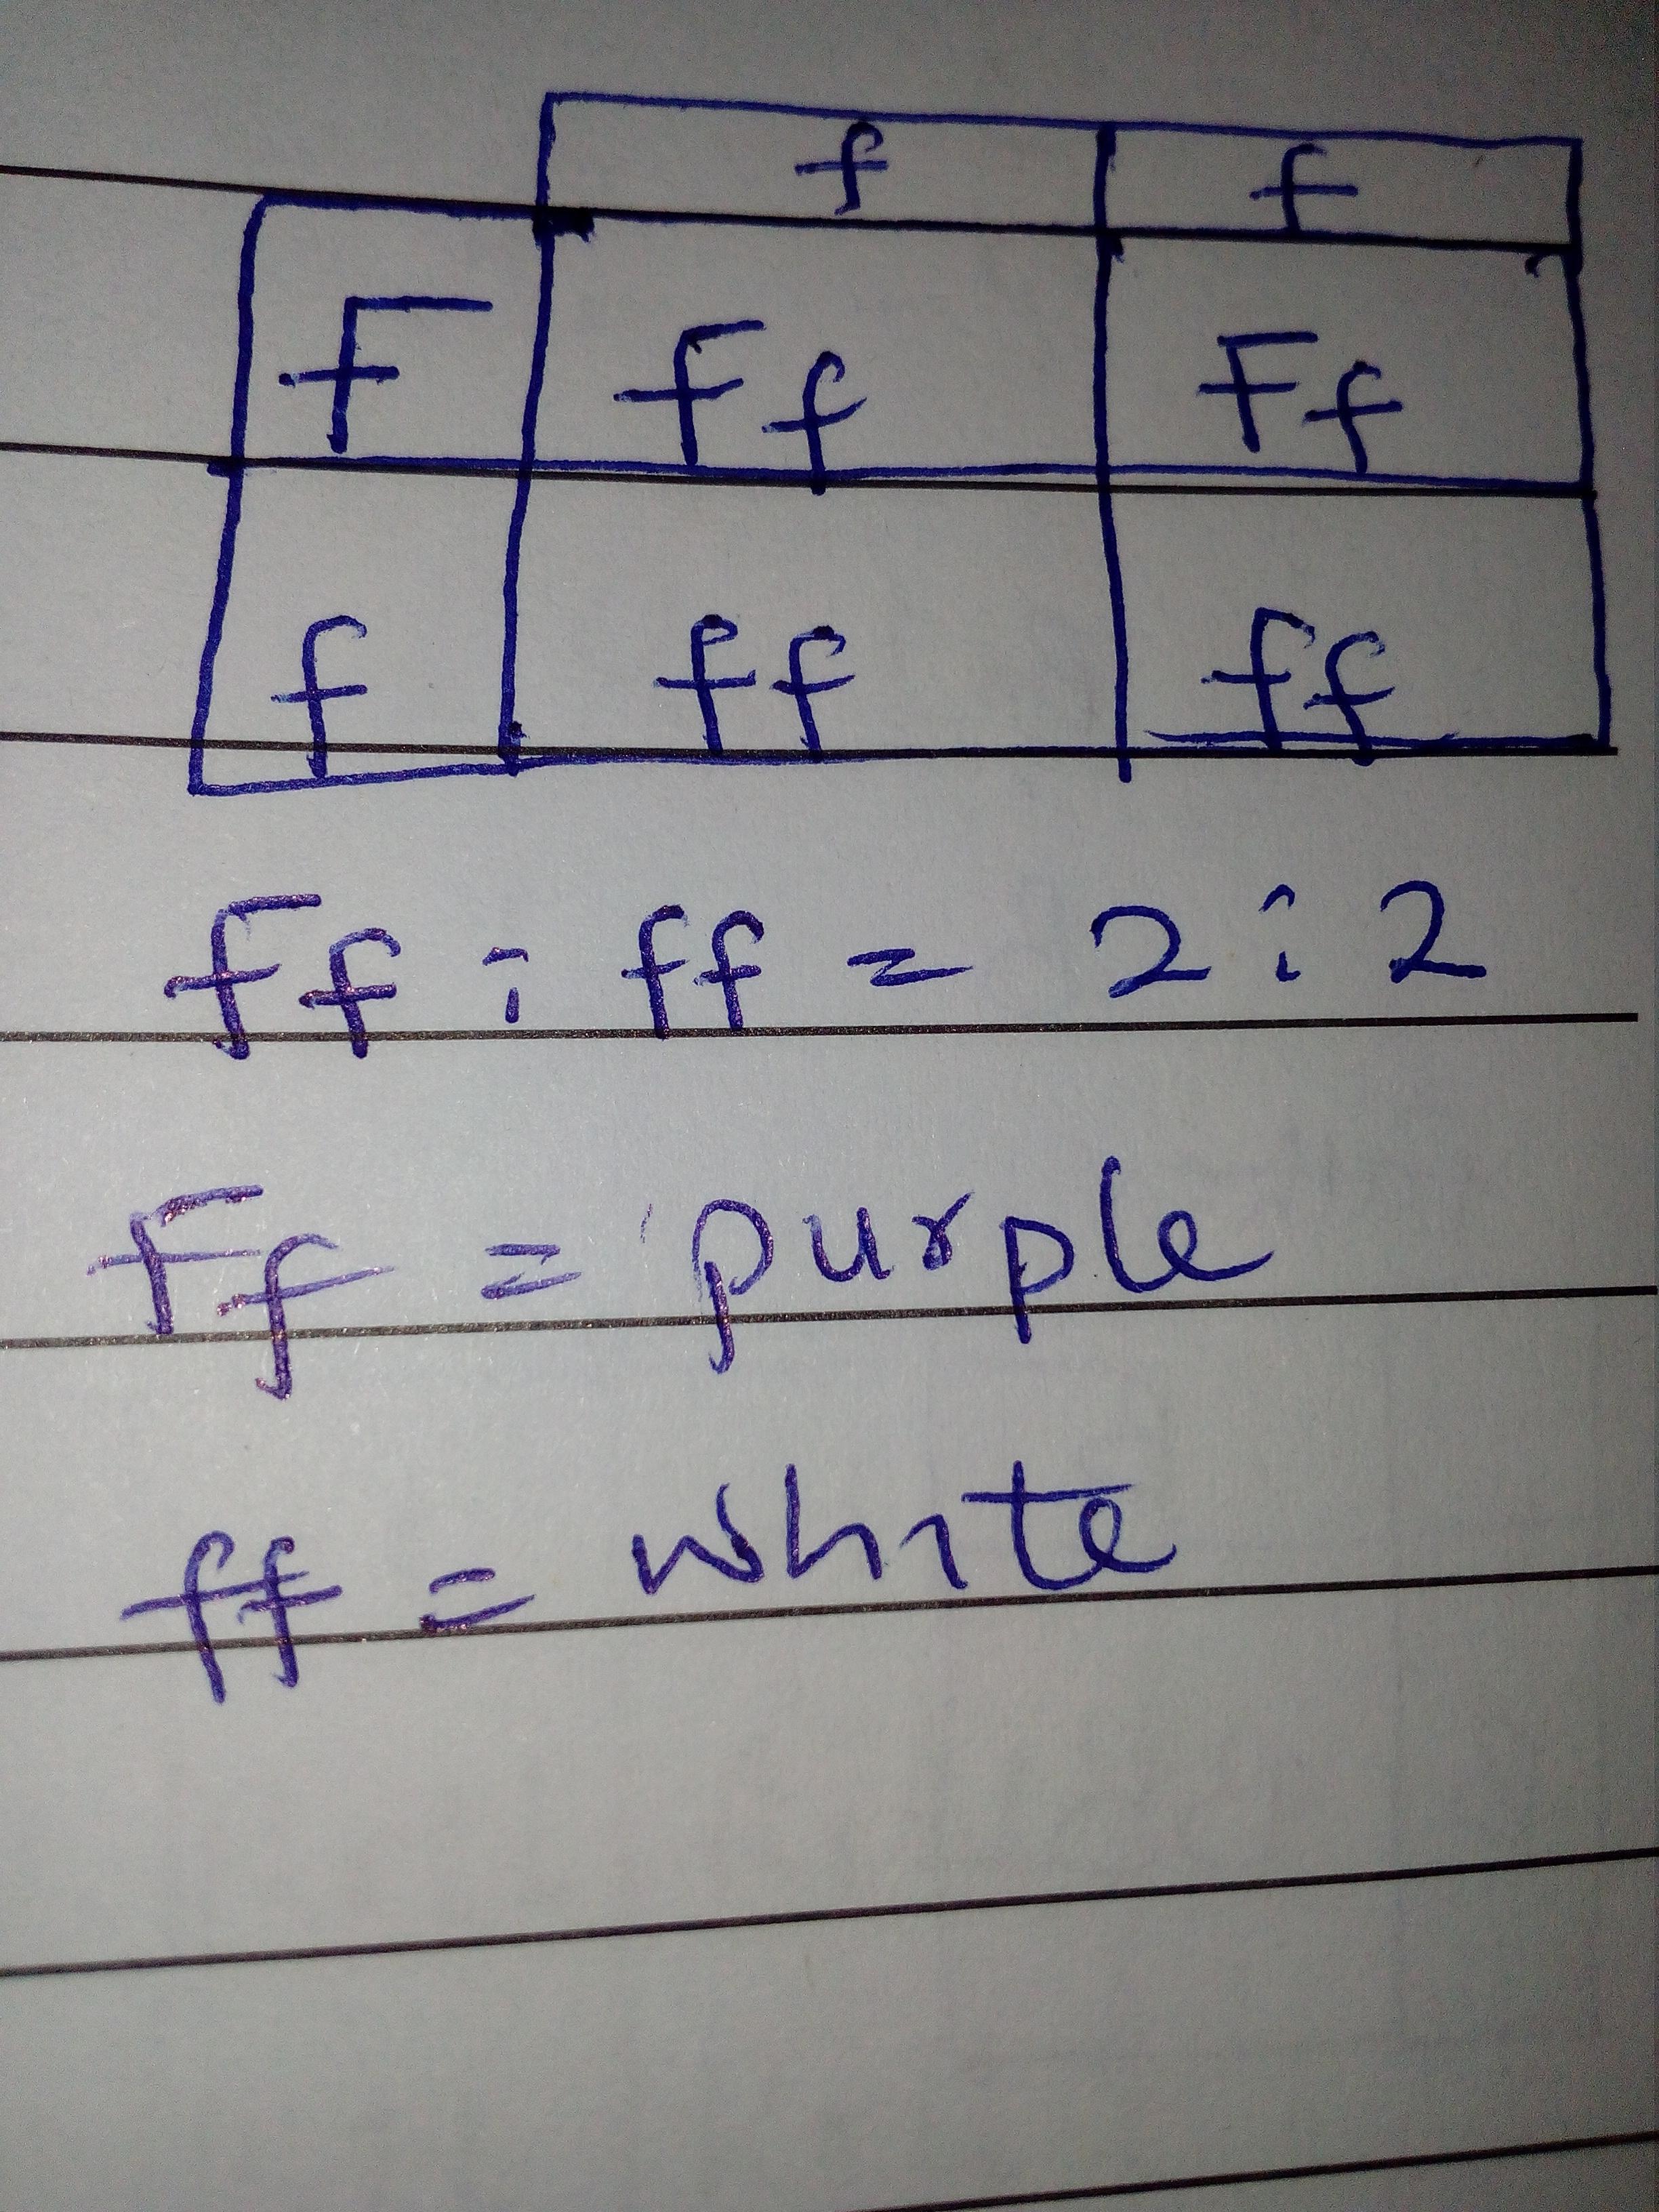 f f
F Ff Ff
f ff ff
Ff : ff = 2 : 2
Ff = purple
ff = white